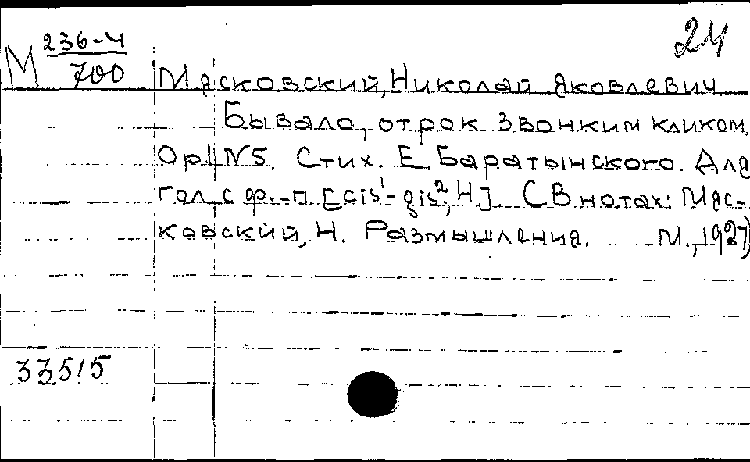 24
М 236-4
700
Мясковский, Николай Яковлевич
Бывало, отрок звонким кликом.
Op 1 N5. Стих. Е. Баратынского. Для
гол. с ф.-п. [cis¹-gis², H] (В нотах: Мяс-
ковский, Н. Размышления. М., 1927)
33515